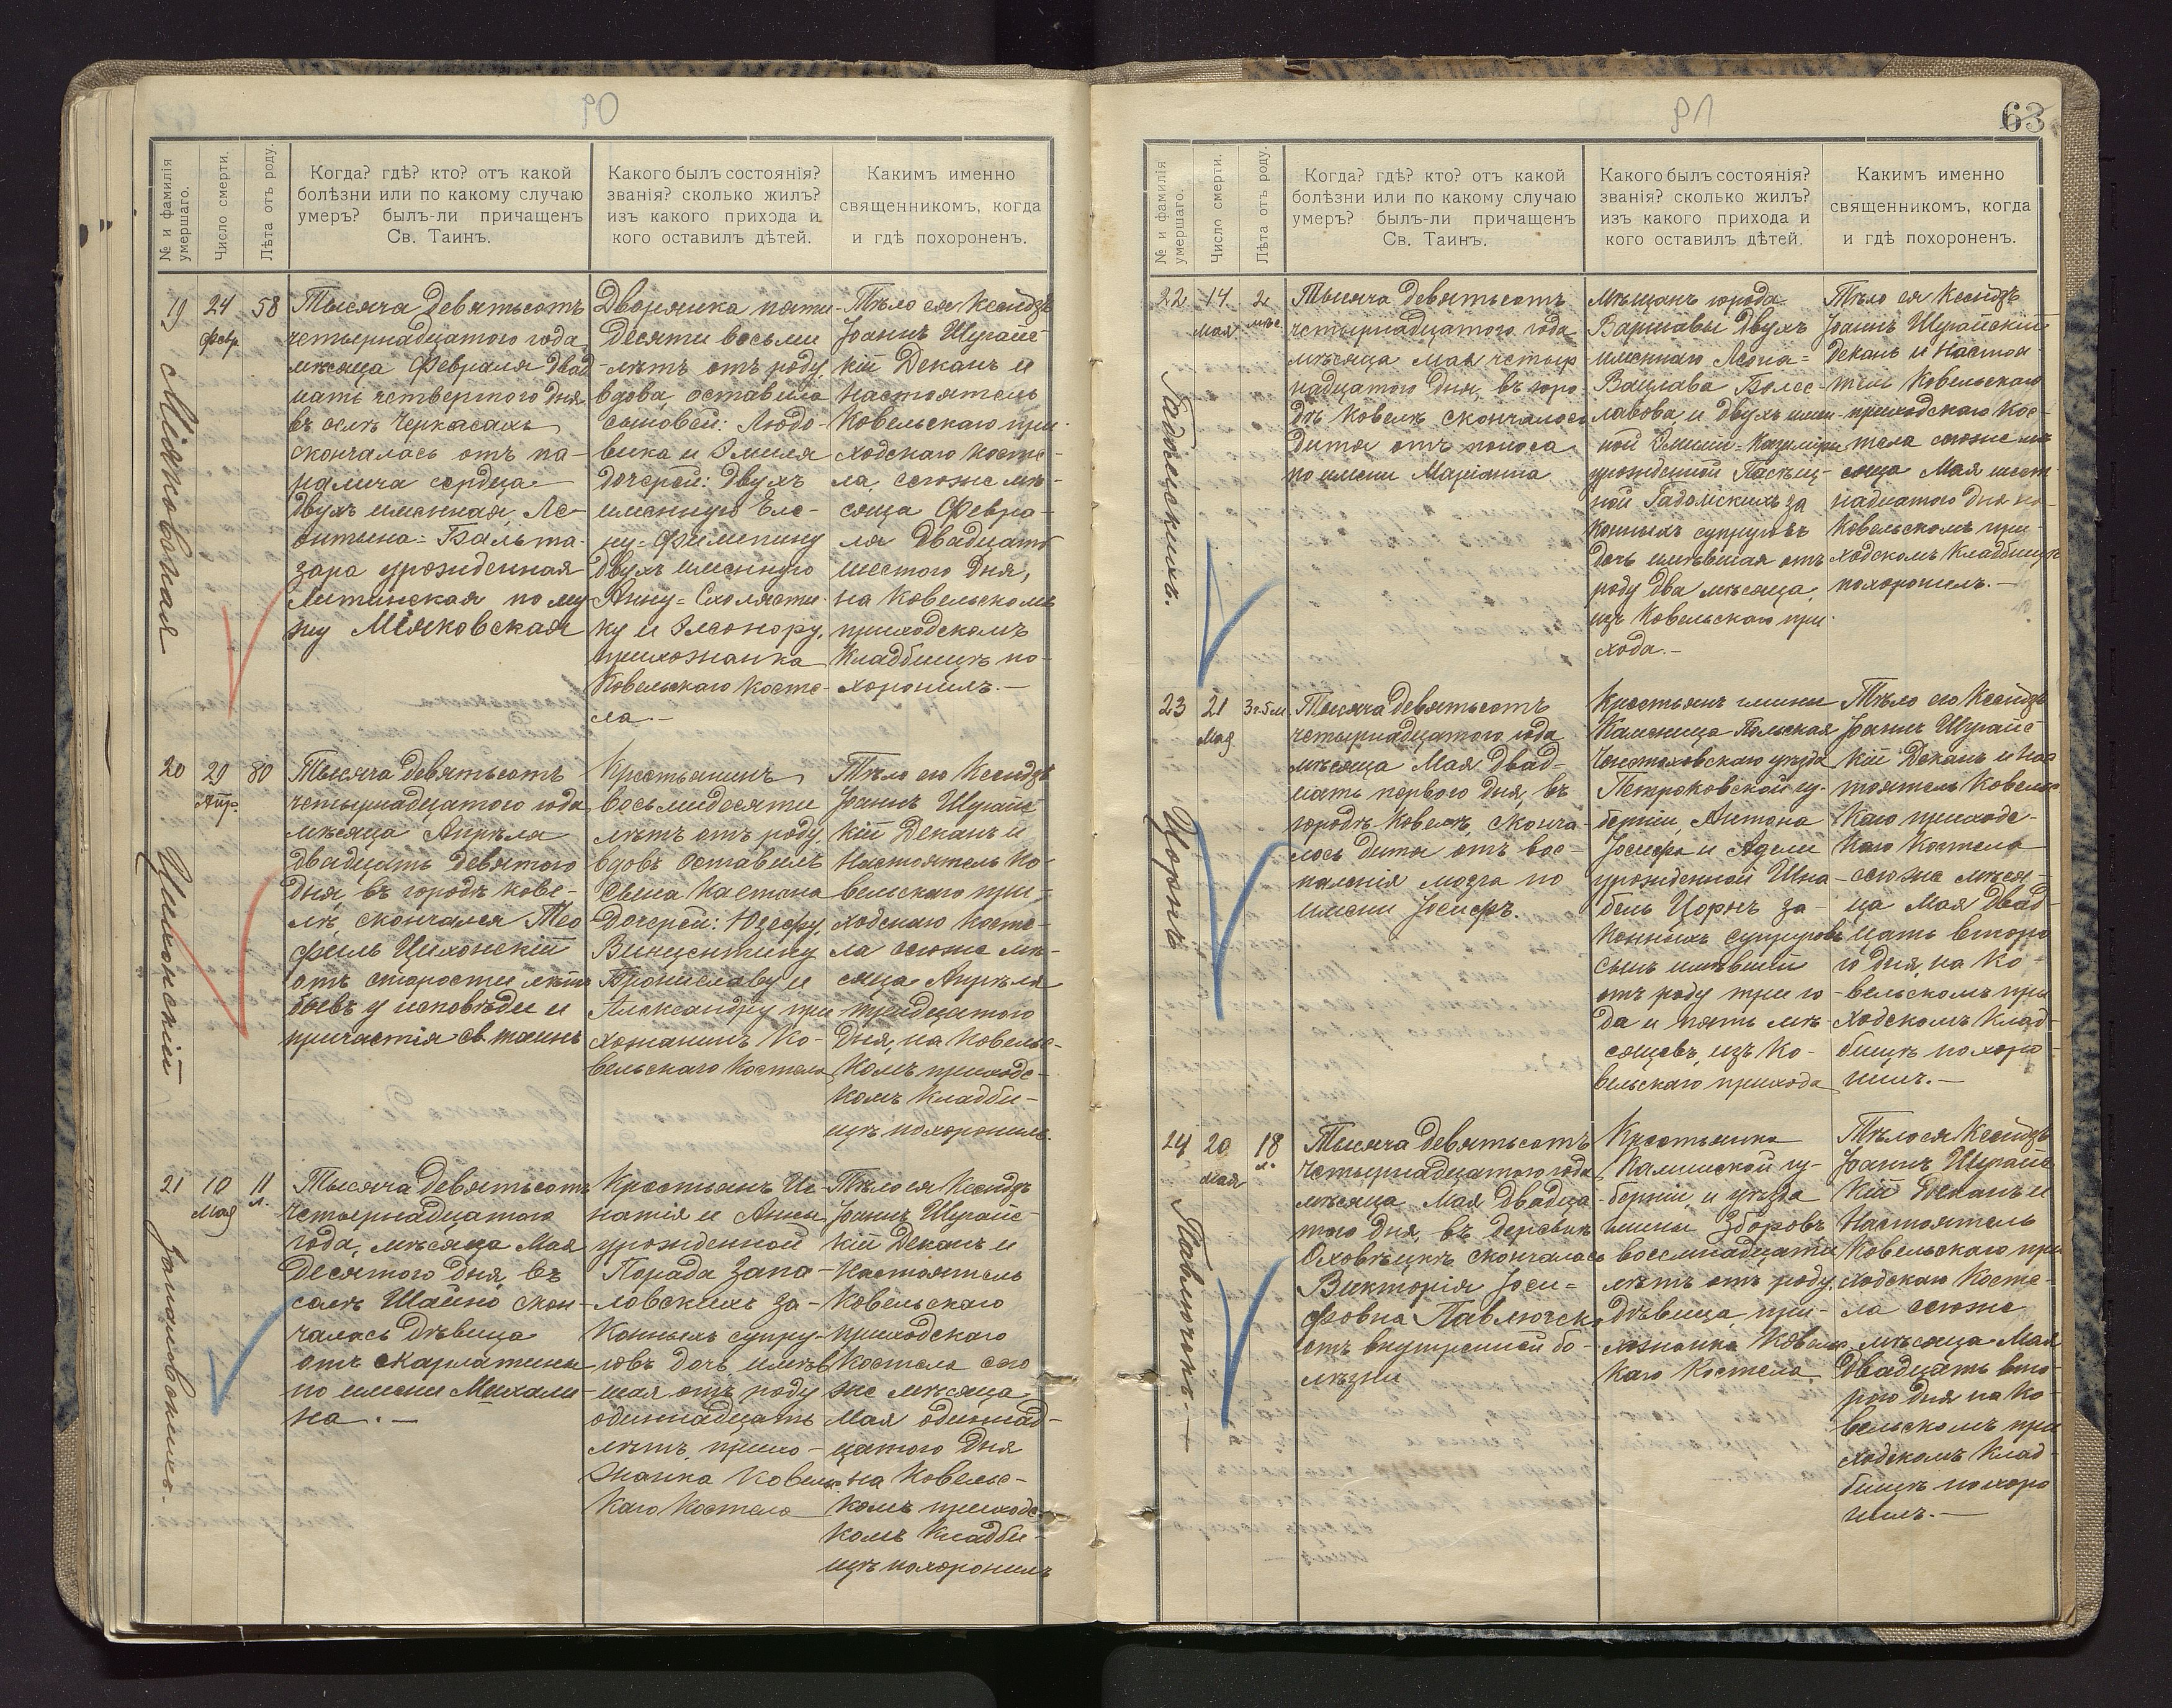 90
№ и фамилія умершаго.
Число смерти.
Лѣта отъ роду.
Когда? гдѣ? кто? отъ какой
болѣзни или по какому случаю
умеръ? былъ-ли причащенъ
Св. Таинъ.
Какого былъ состоянія?
званія? сколько жилъ?
изъ какого прихода и
кого оставилъ дѣтей.
Какимъ именно
священникомъ, когда
и гдѣ похороненъ.
19
24
февр
58
Міяковская
Тысяча девятьсотъ
четырнадцатого года
мѣсяца Февраля двад
цать четвертого дня
въ селѣ Черкасахъ
скончалась отъ па-
ралича сердца
двухъ именная Ле-
онтина=Бальта-
зара урожденная
по му-
жу Міяковская
Дворянка пяти-
десяти восьми
лѣтъ отъ роду,
вдова, оставила
сыновей: Людо-
вика и Эмиля
дочерей: двухъ
именную Еле-
ну-Филипину
двухъ именную
Анну=Схоласти-
ку и Элеонору,
прихожанка
Ковельскаго Косте-
ла.-
Тѣло ея Ксендзъ
Іоаннъ Шурайс-
кій Деканъ и
Настоятель
Ковельскаго при-
ходскаго Косте-
ла, сегоже мѣ-
сяца Февра-
ля двадцать
шестого дня,
на Ковельскомъ
приходскомъ
Кладбищѣ по-
хоронилъ.-
20
29
Апр.
80
Цихонскій
Тысяча девятьсотъ
четырнадцатого года
мѣсяца Апрѣля
двадцать девятого
дня, въ городѣ Кове-
лѣ, скончался Тео
филь Цихонскій
отъ старости лѣтъ
бывъ у исповѣди и
причастія св. таинъ
Крестьянинъ
восьмидесяти
лѣтъ отъ роду,
вдовъ оставилъ
сына Каетана
дочерей: Юзефу,
Винцентину
Брониславу и
Александру при-
хожанинъ Ко-
вельскаго Костела
Тѣло его Ксендзъ
Іоаннъ Шурайс-
кій Деканъ и
Настоятель Ко-
вельскаго при-
ходскаго Косте-
ла сегоже мѣ-
сяца Апрѣля
тридцатого
дня, на Ковельс-
комъ приходс-
комъ Кладби-
щѣ похоронилъ.
21
10
Мая
11
л.
Запаловскихъ.
Тысяча девятьсотъ
четырнадцатого
года, мѣсяца Мая
десятого дня, въ
селѣ Шайно скон-
чалась дѣвица
отъ скарлатины
по имени Михали-
на.-
Крестьянъ Иг-
натія и Анны
урожденной
Порада Запа-
ловскихъ за-
конныхъ супру-
говъ дочь имѣв
шая отъ роду
одиннадцать
лѣтъ, прихо-
жанка Ковельс-
каго Костела
Тѣло ея Ксендзъ
Іоаннъ Шурайс-
кій Деканъ и
Настоятель
Ковельскаго
приходскаго
Костела сего
же мѣсяца
Мая одиннад-
цатого дня
на Ковельс-
комъ приходс-
комъ Кладби-
щѣ похоронилъ
91
63
№ и фамилія умершаго.
Число смерти.
Лѣта отъ роду.
Когда? гдѣ? кто? отъ какой
болѣзни или по какому случаю
умеръ? былъ-ли причащенъ
Св. Таинъ.
Какого былъ состоянія?
званія? сколько жилъ?
изъ какого прихода и
кого оставилъ дѣтей.
Какимъ именно
священникомъ, когда
и гдѣ похороненъ.
22
14
мая
2
мѣс.
Гадомскихъ.
Тысяча девятьсотъ
четырнадцатого года
мѣсяца мая четыр
надцатого дня, въ горо-
дѣ Ковелѣ скончалось
дитя отъ поноса
по имени Маріанна
Мѣщанъ города
Варшавы двухъ
именнаго Леона=
Вацлава Болес-
лавова и двухъ имен
ной Эмилии-Казимиры
урожденной
Гадомскихъ за
конныхъ супруговъ
дочь имѣвшая отъ
роду два мѣсяца,
изъ Ковельскаго при-
хода.-
Тѣло ея Ксендзъ
Іоаннъ Шурайскій
Деканъ и Настоя-
тель Ковельскаго
приходскаго Кос-
тела сегоже мѣ
сяца Мая шест
надцатого дня на
Ковельскомъ при-
ходскомъ Кладбищѣ
похоронилъ.-
23
21
Мая
3 г. 5 м.
Цорнъ
Тысяча девятьсотъ
четырнадцатого года
мѣсяца Мая двад-
цать первого дня, въ
городѣ Ковелѣ, сконча-
лось дитя отъ вос-
паленія мозга по
имени Іосифъ.
Крестьянъ гмины
Каменица Польская
Ченстоховскаго уѣзда
Петроковской гу-
берніи, Антона
Іосифа и Адели
урожденной Шна-
бель Цорнъ за-
конныхъ супруговъ
сынъ имѣвшій
отъ роду три го-
да и пять мѣ-
сяцевъ, изъ Ко-
вельскаго прихода
Тѣло его Ксендзъ
Іоаннъ Шурайс-
кій Деканъ и Нас
тоятель Ковельс-
каго приходс-
каго Костела
сегоже мѣся-
ца Мая двад-
цать второ
го дня, на Ко-
вельскомъ при
ходскомъ Клад-
бищѣ похоро
нилъ.-
24
20
мая
18
л.
Павлючекъ.-
Тысяча девятьсотъ
четырнадцатого года
мѣсяца Мая двадца
того дня, въ деревнѣ
скончалась
Викторія Іоси-
фовна Павлючекъ
отъ внутренней бо-
лѣзни
Крестьянка
Калишской гу-
берніи, и уѣзда
гмины Зборовъ
восемнадцати
лѣтъ отъ роду,
дѣвица, при-
хожанка Ковельс-
каго Костела
Тѣло ея Ксендзъ
Іоаннъ Шурайс-
кій Деканъ и
Настоятель
Ковельскаго при
ходскаго Косте-
ла сегоже
мѣсяца Мая
двадцать вто-
рого дня на Ко-
вельскомъ при
ходскомъ Клад-
бищѣ похоро
нилъ.-